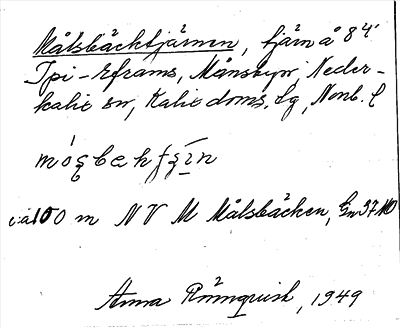 Målsbäcktjärnen, tjärn å 84'
Ipi-Eframs, Månsbyn, Neder-
kalix sn, Kalix doms. lg, Norrb. l
ca 100 m NV M Målsbäcken,
Anna Rönnquist, 1949